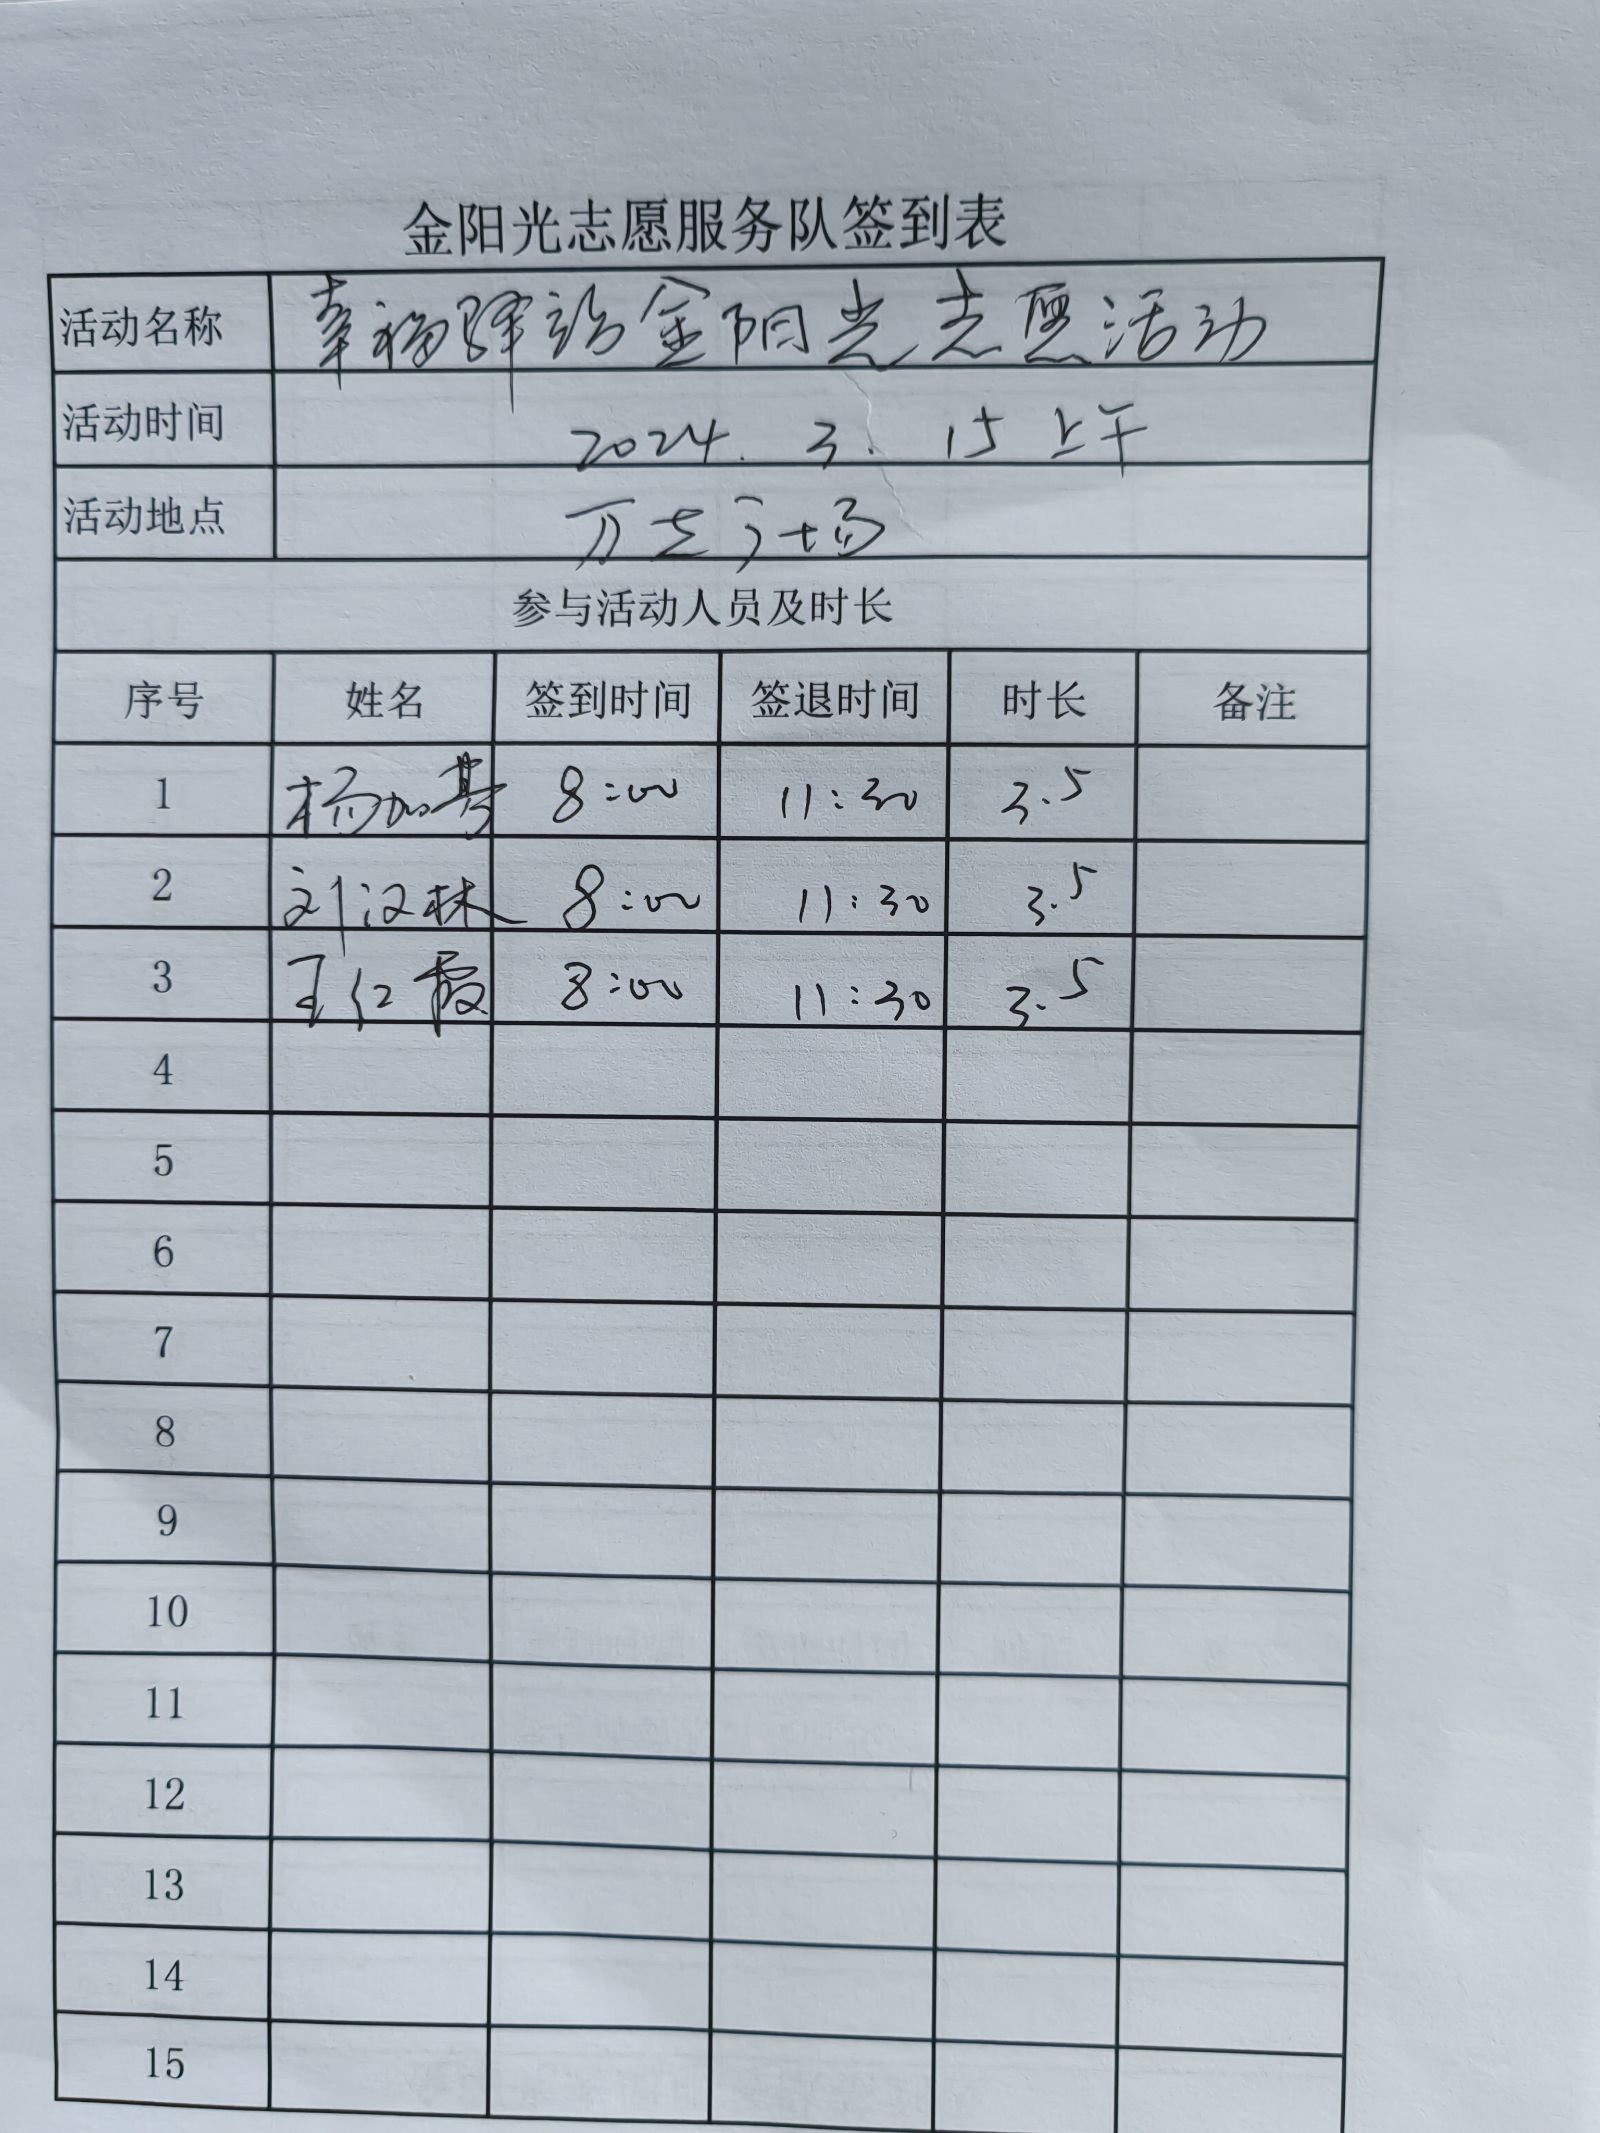 金阳光志愿服务队签到表
活动名称 幸福驿站金阳光志愿活动
活动时间 2024.3.15上午
活动地点 万达广场
参与活动人员及时长
序号 姓名 签到时间 签退时间 时长 备注
1 杨加 8:00 11:30 3.5
2 刘汉林 8:00 11:30 3.5
3 王红霞 8:00 11:30 3.5
4
5
6
7
8
9
10
11
12
13
14
15